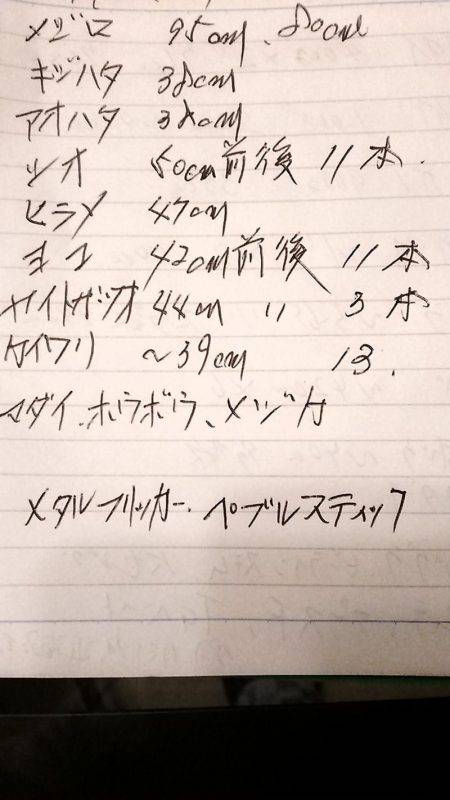 メジロ 95cm、80cm
キジハタ 38cm
アオハタ 38cm
ツオ 50cm前後 11本.
ヒラメ 47cm
ヨコ 42cm前後 11本
ヤイトガツオ 44cm 〃 3本
カイワリ ～39cm 13.
マダイ、ホウボウ、メジカ
メタルフリッカー、ペブルスティック